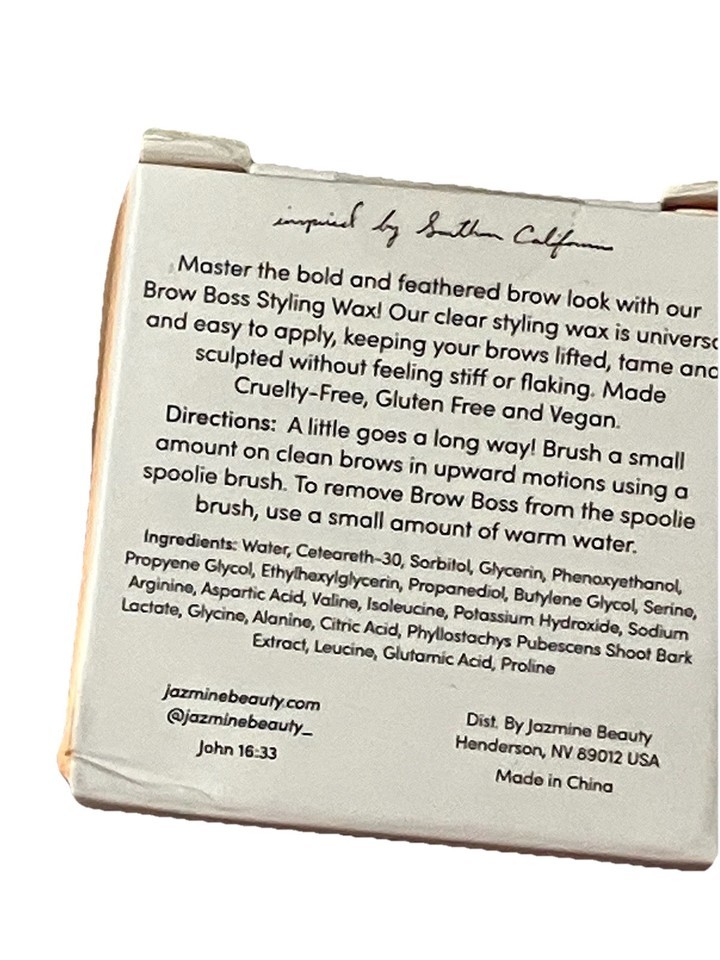 inspired by Southern California
Master the bold and feathered brow look with our
Brow Boss Styling Wax! Our clear styling wax is universa
and easy to apply, keeping your brows lifted, tame and
sculpted without feeling stiff or flaking. Made
Cruelty-Free, Gluten Free and Vegan.
Directions: A little goes a long way! Brush a small
amount on clean brows in upward motions using a
spoolie brush. To remove Brow Boss from the spoolie
brush, use a small amount of warm water.
Ingredients: Water, Ceteareth-30, Sorbitol, Glycerin, Phenoxyethanol,
Propyene Glycol, Ethylhexylglycerin, Propanediol, Butylene Glycol, Serine,
Arginine, Aspartic Acid, Valine, Isoleucine, Potassium Hydroxide, Sodium
Lactate, Glycine, Alanine, Citric Acid, Phyllostachys Pubescens Shoot Bark
Extract, Leucine, Glutamic Acid, Proline
jazminebeauty.com
@jazminebeauty_
John 16:33
Dist. By Jazmine Beauty
Henderson, NV 89012 USA
Made in China